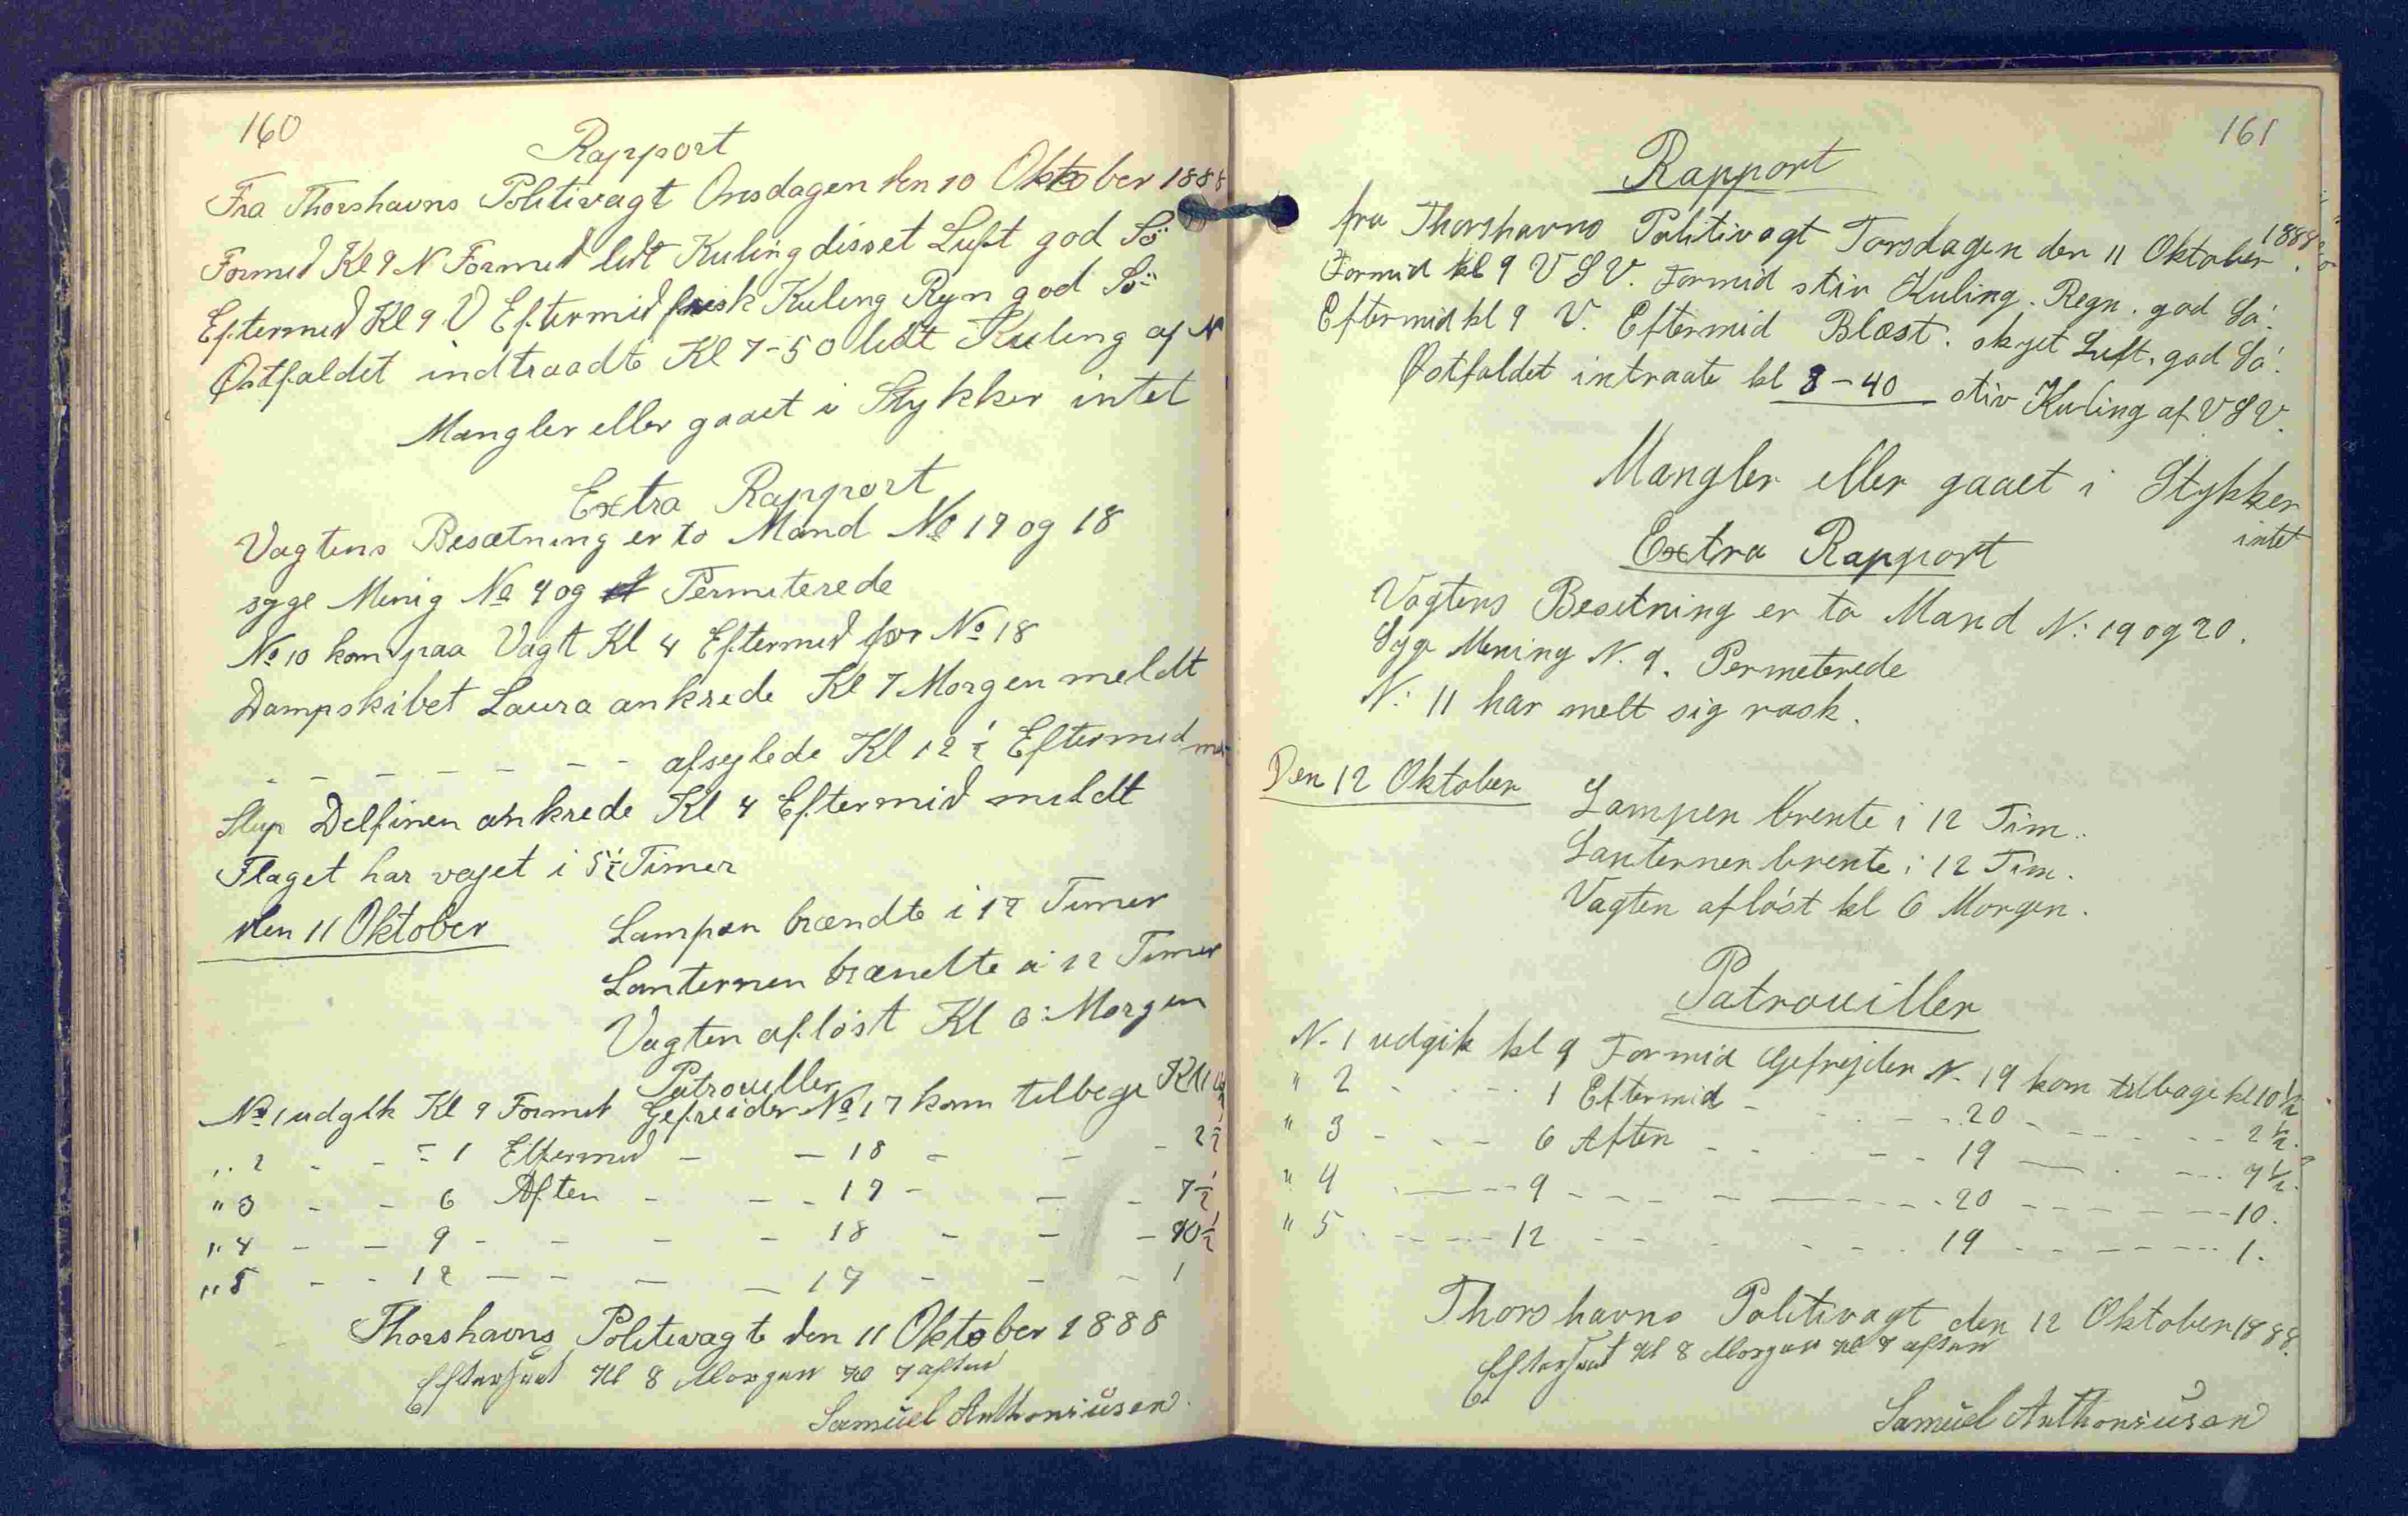 160
Rapport
Fra Thorshavns Politivagt Onsdagen den 10 Oktober 1888
Formid Kl 9 N Formid lidt Kuling disset Luft god Sö
Eftermid Kl 9 V Eftermid frisk Kuling Ryn god Sö
Østfaldet indtraadte Kl 7-50 lidt Kuling af N
Mangler eller gaaet i Stykker intet
Extra Rapport
Vagtens Besætning er to Mand No 17 og 18
syge Menig No 9 og Permiterede
No 10 kom paa Vagt Kl 4 Eftermid for No 18
Dampskibet Laura ankrede Kl 7 Morgen meldt
- - - - - - - afseylede Kl 12 1/2 Eftermid
Slup Delfinen ankrede Kl 4 Eftermid meldt
Flaget har vajet i 5 1/2 Timer
den 11 Oktober
Lampen brændte i 12 Timer
Lanternen brændte i 12 Timer
Vagten afløst Kl 6 Morgen
Patrouiller
No 1 udgik Kl 9 Formid Gefreider No 17 kom tilbage Kl
" 2 - - - 1 Eftermid - - 18 - - - 2 1/2
" 3 - - 6 Aften - - - 17 - - - 7 1/2
" 4 - - 9 - - - - 18 - - - 10 1/2
" 5 - - 12 - - - - 17 - - - 1
Thorshavns Politivagt den 11 Oktober 1888
Efterseet Kl 8 Morgen Kl 7 aften
Samuel Anthoniusen
161
Rapport
fra Thorshavns Politivagt Torsdagen den 11 Oktober 1888.
Formid kl 9 V S V. Formid stiv Kuling. Regn. god Sö.
Eftermid kl 9 V. Eftermid Blæst. skyet Luft. god Sö.
Østfaldet intraate kl 8-40 stiv Kuling af V S V.
Mangler eller gaaet i Stykker
intet
Extra Rapport
Vagtens Besetning er to Mand N: 19 og 20.
Syge Mening N. 9. Permeterede
N: 11 har melt sig rask.
Den 12 Oktober
Lampen brente i 12 Tim.
Lanternen brente i 12 Tim.
Vagten afløst kl 6 Morgen.
Patrouiller
N. 1 udgik kl 9 Formid Gefrejder N. 19 kom tilbage kl 10 1/2
" 2 - - - 1 Eftermid - - - 20 - - - - 2 1/2.
" 3 - - - 6 Aften - - - 19 - - - 7 1/2.
" 4 - - - 9 - - - - - 20 - - - - 10.
" 5 - - - 12 - - - - 19 - - - - 1.
Thorshavns Politivagt den 12 Oktober 1888.
Efterseet Kl 8 Morgen Kl 7 aften
Samuel Anthoniusen